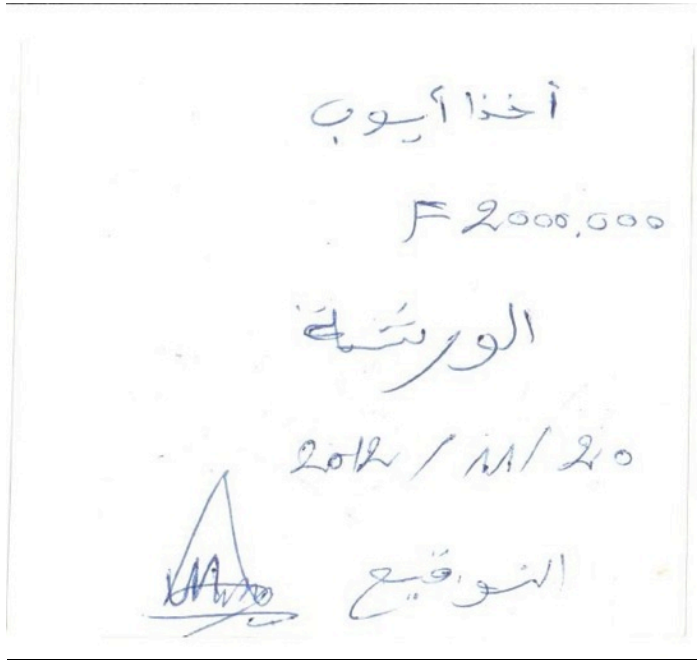 أخذا أيوب
F 2000.000
الورشة
2012 / 11 / 20
التوقيع